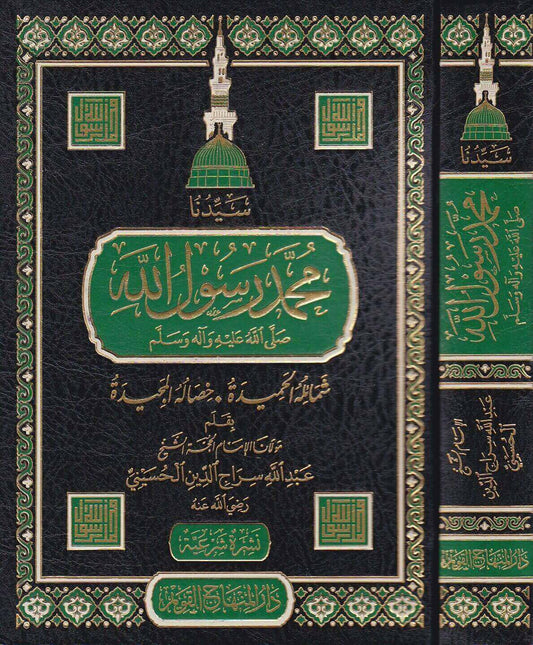 سَيِّدُنَا
مُحَمَّدٌ رَسُولُ اللّٰهِ
صَلَّى اللهُ عَلَيْهِ وَآلِهِ وَسَلَّمَ
شَمَائِلُهُ الْحَمِيدَةُ . خِصَالُهُ الْمَجِيدَةُ
بِقَلَمِ
مَوْلَانَا الإِمَامِ الْحُجَّةِ الشَّيْخِ
عَبْدِ اللهِ سِرَاجِ الدِّينِ الْحُسَيْنِيِّ
رَضِيَ اللهُ عَنْهُ
نَشْرَةٌ شَرْعِيَّةٌ
دَارُ الْمِنْهَاجِ الْقَوِيمِ
سَيِّدُنَا
مُحَمَّدٌ رَسُولُ اللّٰهِ
صَلَّى اللهُ عَلَيْهِ وَآلِهِ وَسَلَّمَ
الإِمَامِ الشَّيْخِ
عَبْدِ اللهِ سِرَاجِ الدِّينِ
الْحُسَيْنِيِّ
دَارُ الْمِنْهَاجِ الْقَوِيمِ